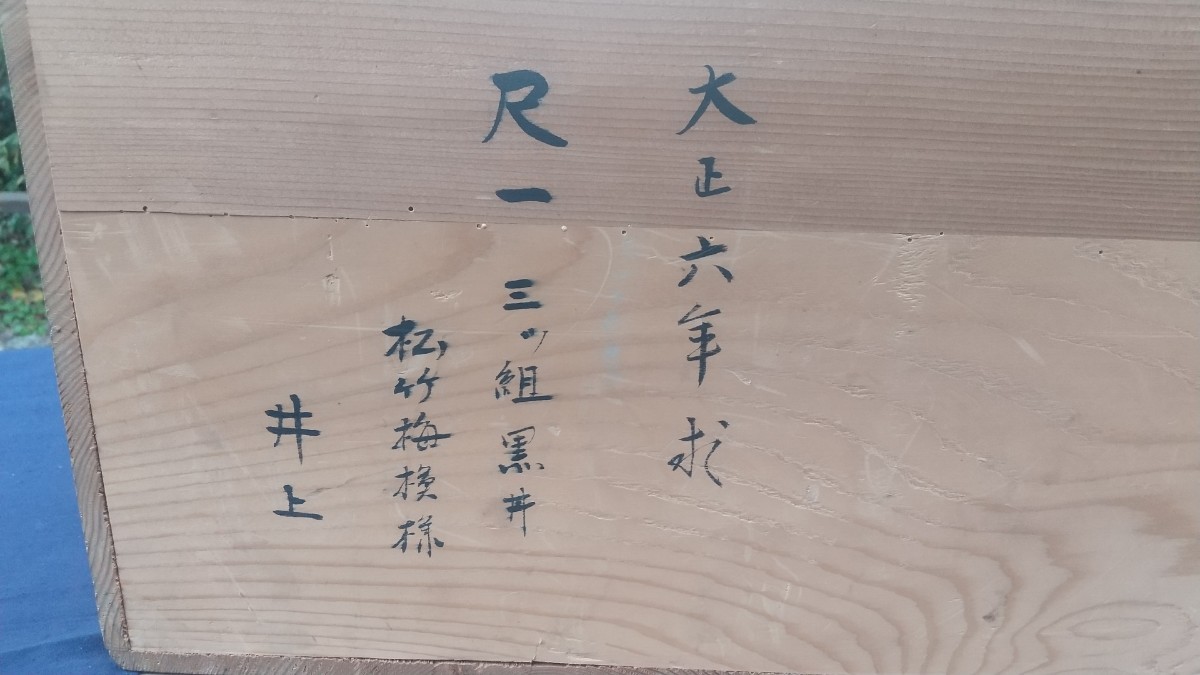 大正六年求
尺一 三ッ組黒丼
松竹梅模様
井上